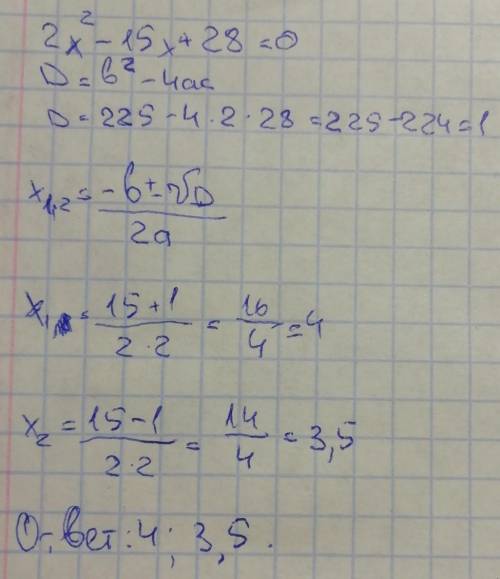 2x² - 15x + 28 = 0
D = b² - 4ac
D = 225 - 4 · 2 · 28 = 225 - 224 = 1
x₁,₂ = (-b ± √D) / 2a
x₁ = (15 + 1) / (2 · 2) = 16 / 4 = 4
x₂ = (15 - 1) / (2 · 2) = 14 / 4 = 3,5
Ответ: 4; 3,5.